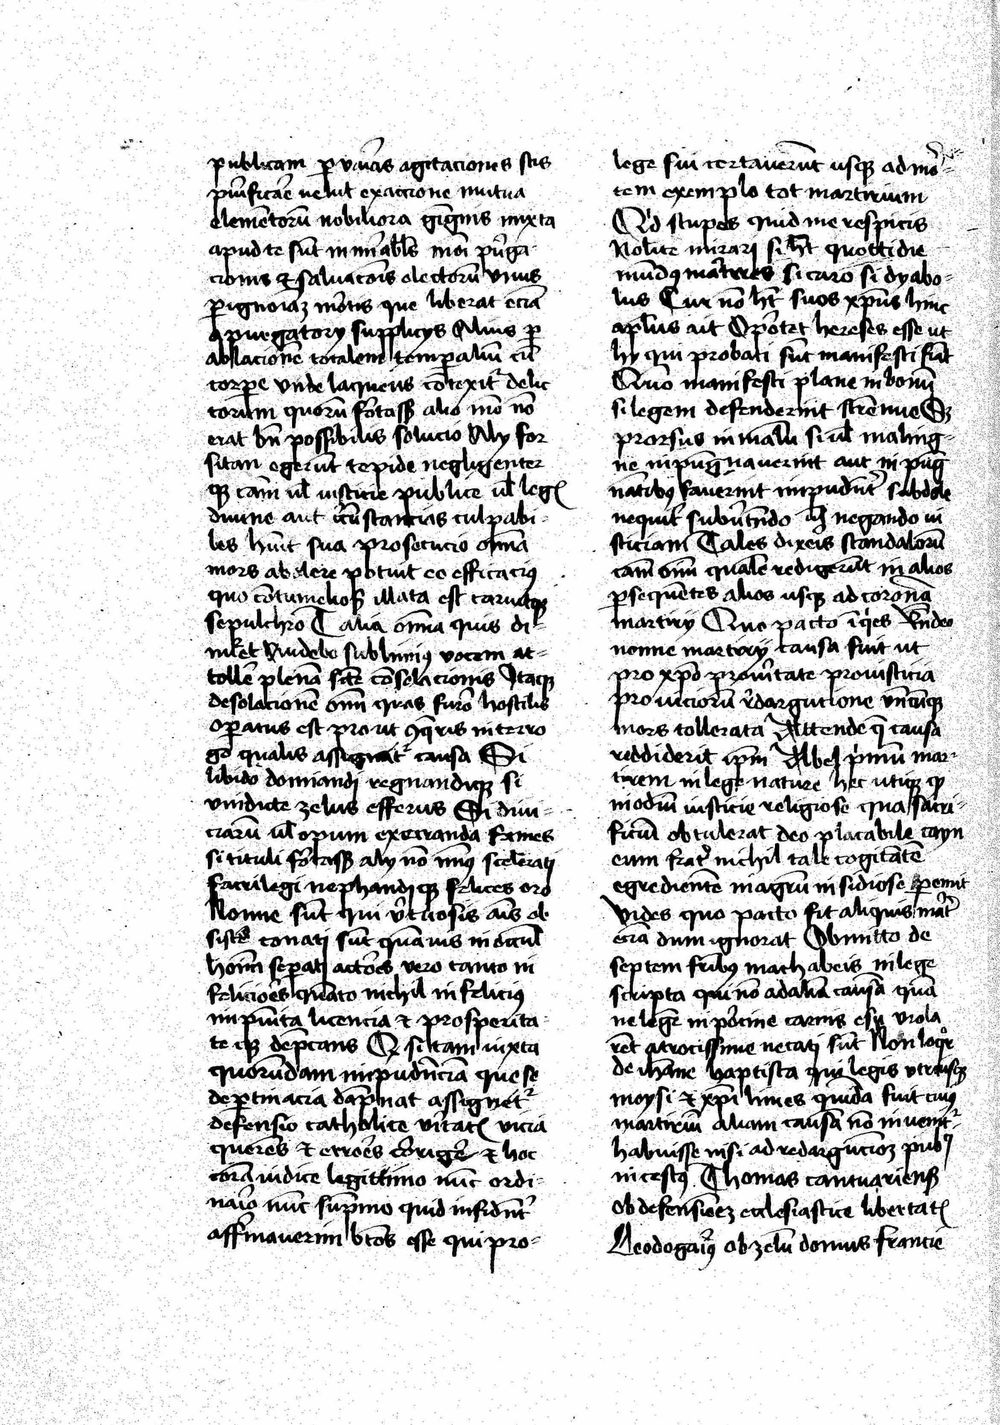 publicam p varias agitaciones stis
purificare velut exaccione mutua
elementorū nobiliora gignis iuxta
apud te sūt innūabīls modi pūga
cionis & saluacōis electorū Vnius
pignorāz mōtis que liberat eciā
a purgatorÿ supplicÿs Alius p
ablacionē totalem tempaliū cū
corpe vnde laqueus cōtexit delic
torum quorū fōtassis alio mō nō
erat bn possibilis solucio Alÿ for
sitan egerūt tepide negligenter
qz cām vl iusticie publice vl legis
diuine aut circūstancias culpabi-
les huit sua prosecucio omnia
mors abolere potuit eo efficacius
quo cōtumelios illata est caruitqz
sepulchro Talia omnia quis di-
mult Audebo sublimius vocem at-
tollē plenā scē cōsolacionis Itaqz
desolacionē omē quas furor hostilis
opatus est prout oqueris interro
go qualis assignat causa Si
libido dominandi regnandiqz si
vindicte zelus efferus Si diui-
ciarū vl opum execranda fames
si tituli fōtassis alÿ nō mīus scelerati
sacrilegi nephandiqz felices ero
Nonne sūt qui vtuosis aīs ob
sistē conati sūt quāuis in ocul
hoīm sepati actōes vero tanto in
feliciores quāto nichil infelicius
impunita licencia & prosperita-
te eqz depcans Qz si tam iuxta
quorūdam impudēciā que se
de ptinacia dāpnat assignet
defensio catholice vitatis vicia
querēs & errōes corrigē & hoc
corā iudice legittimo nūc ordi-
nario nūc supmo quid insidūt
affirmauerim btos esse qui pro-
lege sui certauerūt vsqz ad mo-
tem exemplo tot martirium
Qd stupes quid me respicis
Nolite mirari si ht quottidie
mūdus mātires si caro si dyabo-
lus Cur nō ht suos xpus hinc
aplus ait Oportet hereses esse ut
hÿ qui probati sūt manifesti fiūt
Quō manifesti plane in bonū
si legem defenderint strēnue Sz
prorsus in malū si vl malig-
ne inpugnauerint aut inpug
natibus fauerint impudēt subdole
nequit subūtendo vl negando iu
sticiam Tales dixeris scandalorū
cam oīm qualē redigerūt in alios
psequētes alios usqz ad coronā
martirÿ Quo pacto iqies Rndeo
nonne martirÿ causa fuit ut
pro xpo pro vitate pro iusticia
pro viciorū rdargutione vnicuiqz
mors tollerata Attende q causa
reddiderit ipm Abel pmū mar-
tirem in lege nature hec vtiqz qz
modū iusticie religiose qua sacri-
ficiū obtulerat deo placabile cayn
eum frat nichil tale cogitatē
egredientē in agrū insidiose pemit
Vides quo pacto fit aliquis mat
eciā dum ignorat Obmitto de
septem fribus machabeis in lege
scripta qui nō ad aliā causā quā
ne legē inporcine carnis esu viola
rēt atrocissime necati sūt Non loqr
de iohāne baptista qui legis vtriusqz
moysi & xpi limes quidā fuit cuius
martiriū aliam causā nō inuenit
habuisse nisi ad redarguciōz publi
incestus Thomas cantuariensis
ob defensiōez ecclesiastice libertatis
Leodogarius ob zelū domus francie